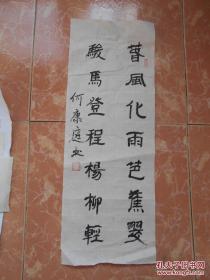 春風化雨芭蕉翠
駿馬登程楊柳輕
何康庭书